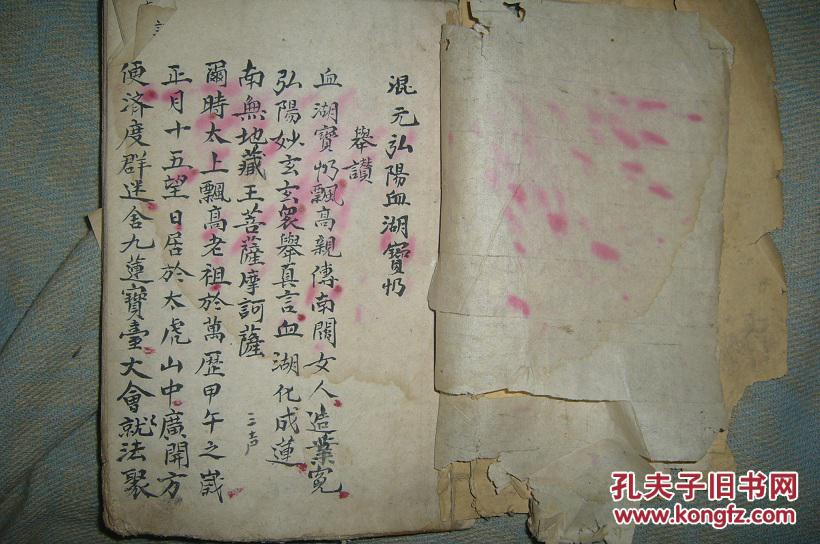 混元弘陽血湖寶忏
舉讃
血湖寶忏飄高親傳南閻女人造業寃
弘陽妙玄玄衆舉真言血湖化成蓮
南無地藏王菩薩摩訶薩 三声
爾時太上飄高老祖於萬歷甲午之歲
正月十五望日居於太虎山中廣開方
便濟度群迷舍九蓮寶臺大會就法聚
孔夫子旧书网
www.kongfz.com